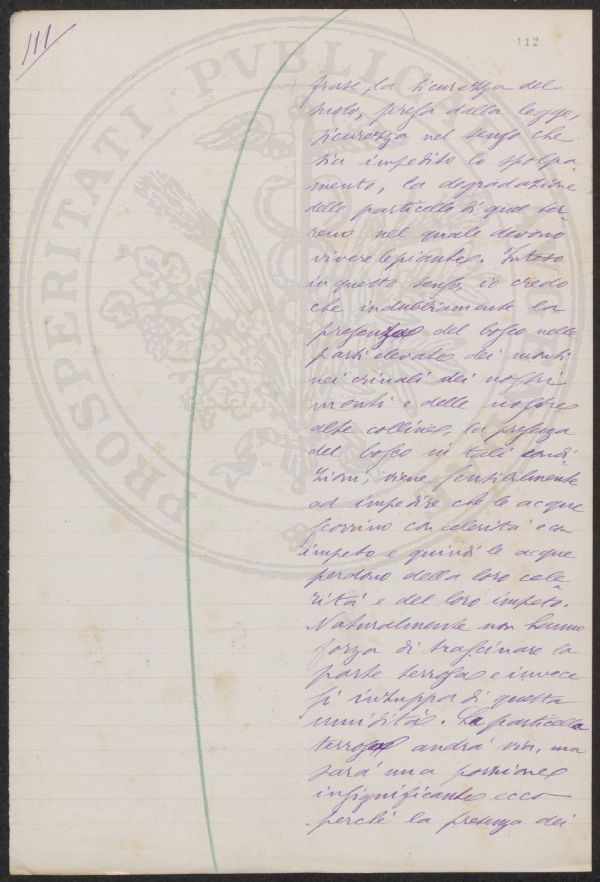 111
112
frase, la sicurezza del
suolo, presa dalla legge,
sicurezza nel senso che
sia impedito lo spolpa
mento, la degradazione
delle particelle di quel ter,
reno nel quale devono
vivere le piante. Inteso
in questo senso, io credo
che indubbiamente la
presenza del bosco nelle
parti elevate dei monti
nei crinali dei nostri
monti e delle nostre
alte colline, la presenza
del bosco in tali condi
zioni, viene sensibilmente
ad impedire che le acque
scorrino con celerità e con
impeto e quindi le acque
perdono della loro cele
rità e del loro impeto.
Naturalmente non hanno
forza di trascinare la
parte terrosa e invece
si inzuppa di questa
umidità. La particella
terrosa andrà via, ma
sarà una porzione
insignificante ecco
perchè la presenza dei
PROSPERITATI PVBLICAE